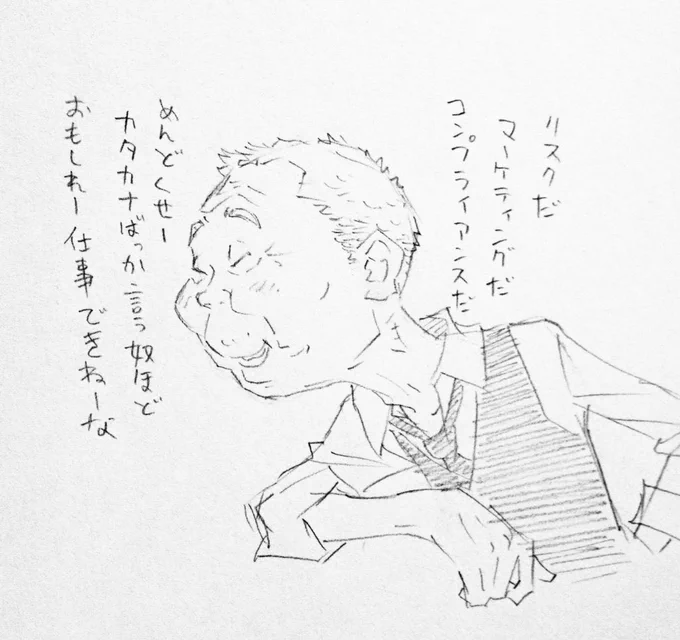 リスクだ
マーケティングだ
コンプライアンスだ
めんどくせー
カタカナばっか言う奴ほど
おもしれー仕事できねーな